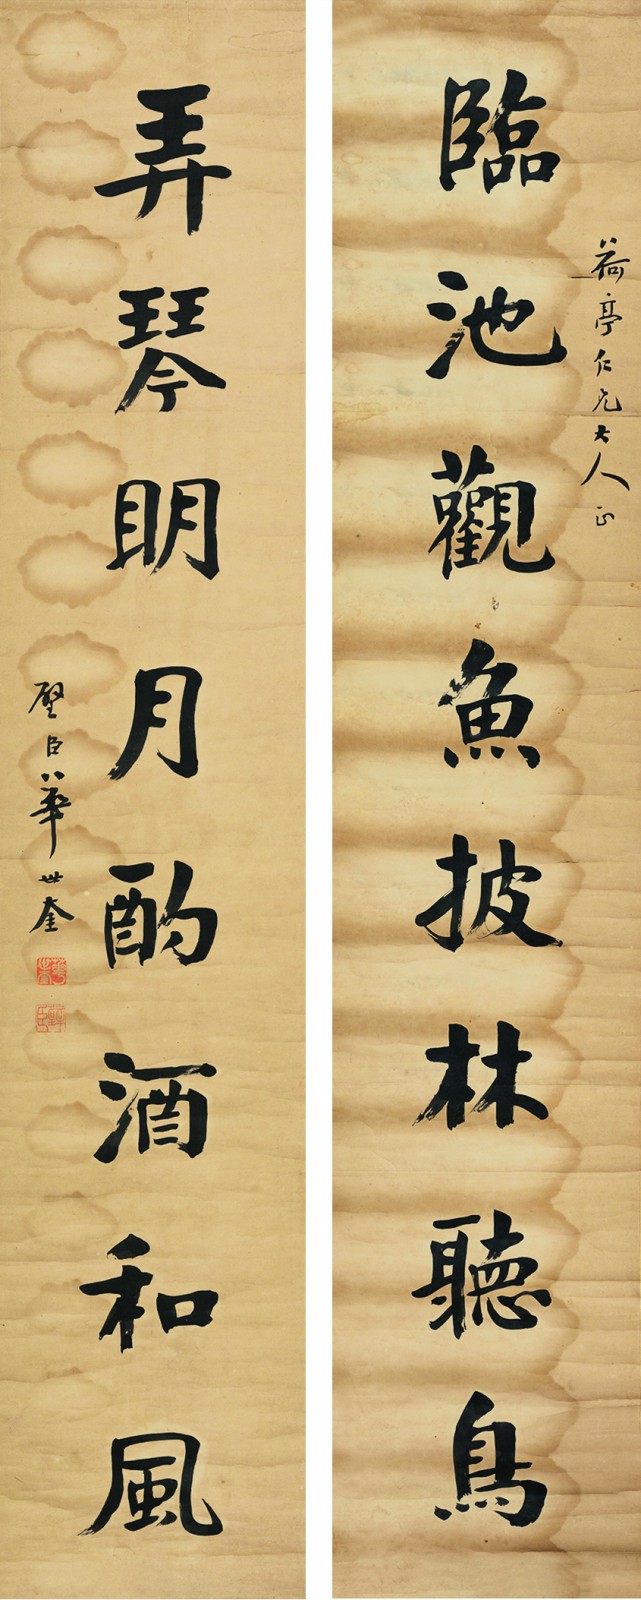 荷亭仁兄大人正
臨池觀魚披林聽鳥
弄琴明月酌酒和風
璧臣華世奎